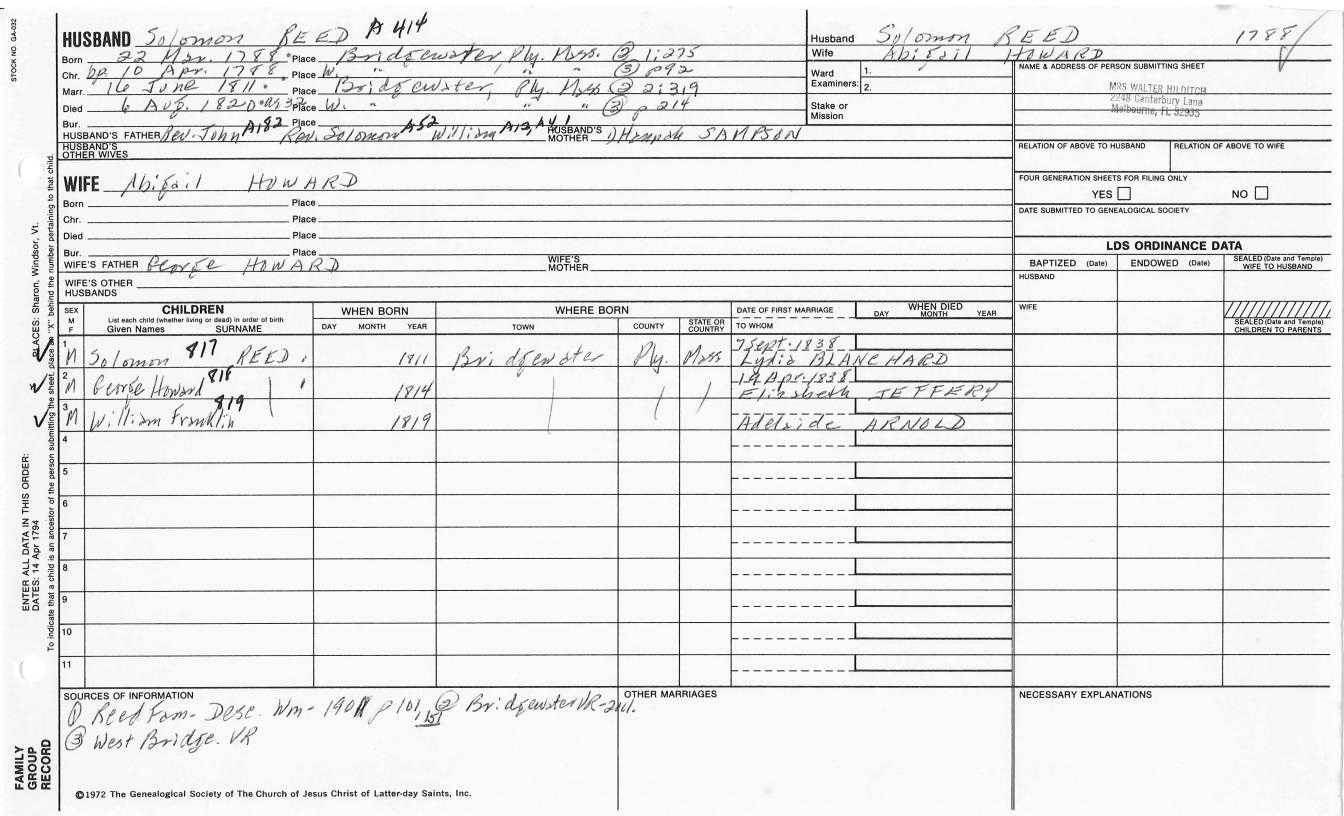 STOCK NO. GA-032
HUSBAND Solomon REED A 414
Born 22 Mar. 1788. Place Bridgewater Ply. Mass. ② 1:275
Chr. bp. 10 Apr. 1788. Place W. " " " ③ p92
Marr. 16 June 1811. Place Bridgewater, Ply. Mass ② 2:319
Died 6 Aug. 1820 Place W. " " ③ p 214
Bur. Place
HUSBAND'S FATHER Rev. John A182 Rev. Solomon A52 William A12, A4, 1 HUSBAND'S MOTHER 1) Hannah SAMPSON
HUSBAND'S OTHER WIVES
WIFE Abigail HOWARD
Born Place
Chr. Place
Died Place
Bur. Place
WIFE'S FATHER George HOWARD WIFE'S MOTHER
WIFE'S OTHER HUSBANDS
Husband Solomon REED 1788
Wife Abigail HOWARD
Ward Examiners: 1.
2.
Stake or Mission
NAME & ADDRESS OF PERSON SUBMITTING SHEET
MRS WALTER HILDITCH
2248 Canterbury Lana
Melbourne, FL 32935
RELATION OF ABOVE TO HUSBAND RELATION OF ABOVE TO WIFE
FOUR GENERATION SHEETS FOR FILING ONLY
YES NO
DATE SUBMITTED TO GENEALOGICAL SOCIETY
LDS ORDINANCE DATA
BAPTIZED (Date) ENDOWED (Date) SEALED (Date and Temple) WIFE TO HUSBAND
HUSBAND
WIFE
SEALED (Date and Temple) CHILDREN TO PARENTS
SEX M F CHILDREN WHEN BORN WHERE BORN DATE OF FIRST MARRIAGE WHEN DIED
List each child (whether living or dead) in order of birth
Given Names SURNAME DAY MONTH YEAR TOWN COUNTY STATE OR COUNTRY TO WHOM DAY MONTH YEAR
1 7 Sept. 1838
M Solomon 817 REED 1811 Bridgewater Ply. Mass Lydia BLANCHARD
2 Apr. 1838
M George Howard 818 1814 Elizabeth JEFFERY
3
M William Franklin 819 1819 Adelaide ARNOLD
4
5
6
7
8
9
10
11
SOURCES OF INFORMATION
① Reed Fam- Desc. Wm- 1901 p 101, 151 ② Bridgewater VR-2vol.
③ West Bridge. VR
OTHER MARRIAGES
NECESSARY EXPLANATIONS
©1972 The Genealogical Society of The Church of Jesus Christ of Latter-day Saints, Inc.
ENTER ALL DATA IN THIS ORDER:
DATES: 14 Apr 1794 PLACES: Sharon, Windsor, Vt.
To indicate that a child is an ancestor of the person submitting the sheet, place an "X" behind the number pertaining to that child.
FAMILY GROUP RECORD